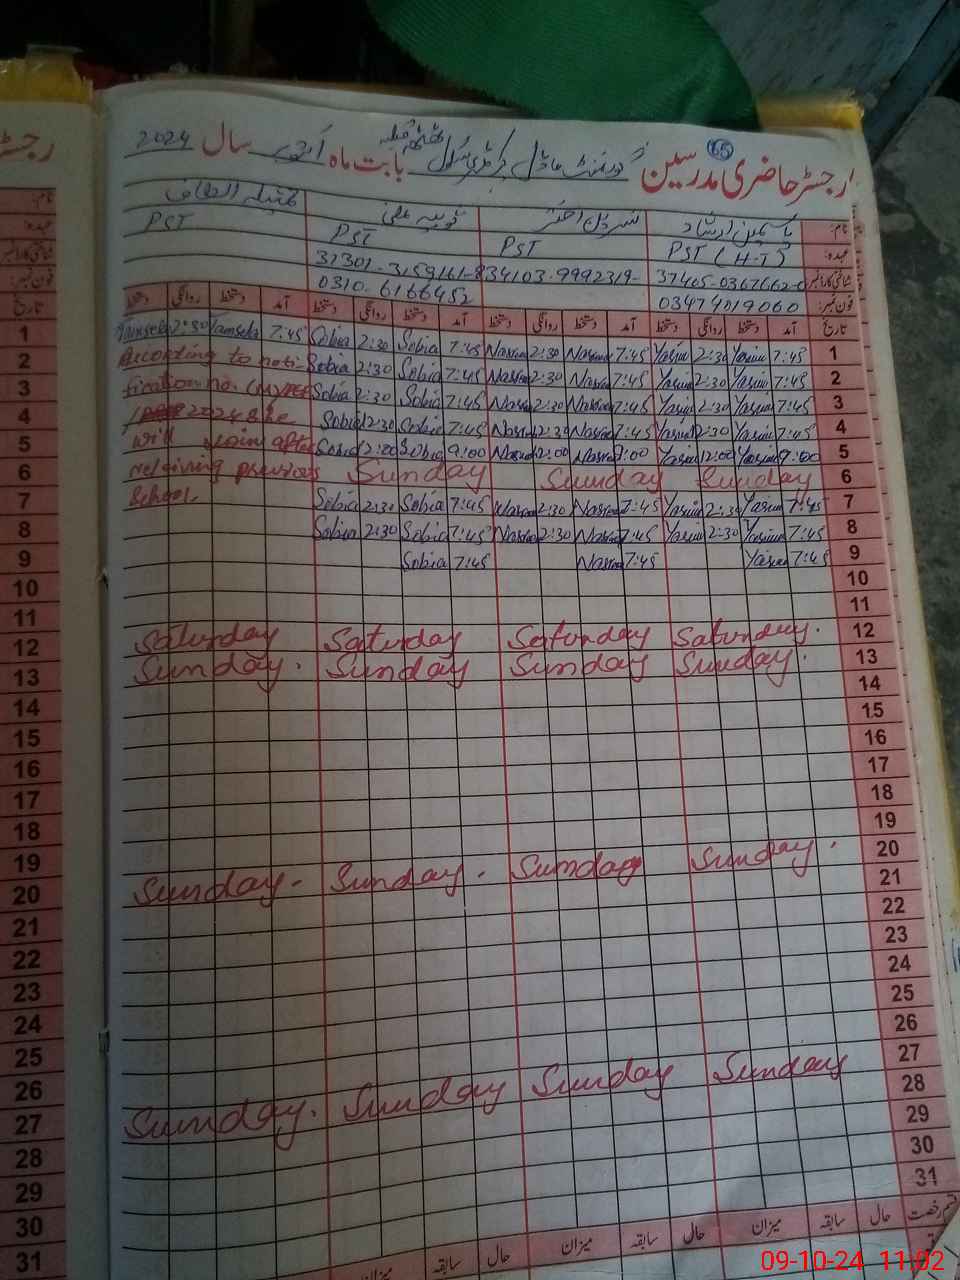 رجسٹر حاضری مدرسین گورنمنٹ ماڈل پرائمری سکول بابت ماہ اکتوبر سال 2024
65
نام: یاسمین ارشاد نسرین اختر ثوبیہ علی تمثیلہ الطاف
عہدہ: PST (H-T) PST PST PST
شناختی کارڈ نمبر 37405-0367662-0 34103-9992319- 37301-3159161-8
فون نمبر: 03474019060 0310-6166452
تاریخ آمد دستخط روانگی دستخط آمد دستخط روانگی دستخط آمد دستخط روانگی دستخط آمد دستخط روانگی دستخط
1 Tamsela 2:30 Tamsela 7:45 Sobia 2:30 Sobia 7:45 Nasreen 2:30 Nasreen 7:45 Yasmin 2:30 Yasmin 7:45 1
2 According to noti- Sobia 2:30 Sobia 7:45 Nasreen 2:30 Nasreen 7:45 Yasmin 2:30 Yasmin 7:45 2
3 fication no. Sobia 2:30 Sobia 7:45 Nasreen 2:30 Nasreen 7:45 Yasmin 2:30 Yasmin 7:45 3
4 2024 She Sobia 2:30 Sobia 7:45 Nasreen 2:30 Nasreen 7:45 Yasmin 2:30 Yasmin 7:45 4
5 will join after Sobia 12:00 Sobia 9:00 Nasreen 12:00 Nasreen 9:00 Yasmin 12:00 Yasmin 9:00 5
6 religiving previous Sunday Sunday Sunday 6
7 School. Sobia 2:30 Sobia 7:45 Nasreen 2:30 Nasreen 7:45 Yasmin 2:30 Yasmin 7:45 7
8 Sobia 2:30 Sobia 7:45 Nasreen 2:30 Nasreen 7:45 Yasmin 2:30 Yasmin 7:45 8
9 Sobia 7:45 Nasreen 7:45 Yasmin 7:45 9
10 10
11 11
12 Saturday Saturday Saturday Saturday. 12
13 Sunday. Sunday Sunday Sunday. 13
14 14
15 15
16 16
17 17
18 18
19 19
20 Sunday. Sunday. Sunday Sunday. 20
21 21
22 22
23 23
24 24
25 25
26 26
27 Sunday. Sunday Sunday Sunday 27
28 28
29 29
30 30
31 31
قسم رخصت حال سابقہ میزان حال سابقہ میزان حال سابقہ میزان
09-10-24 11:02